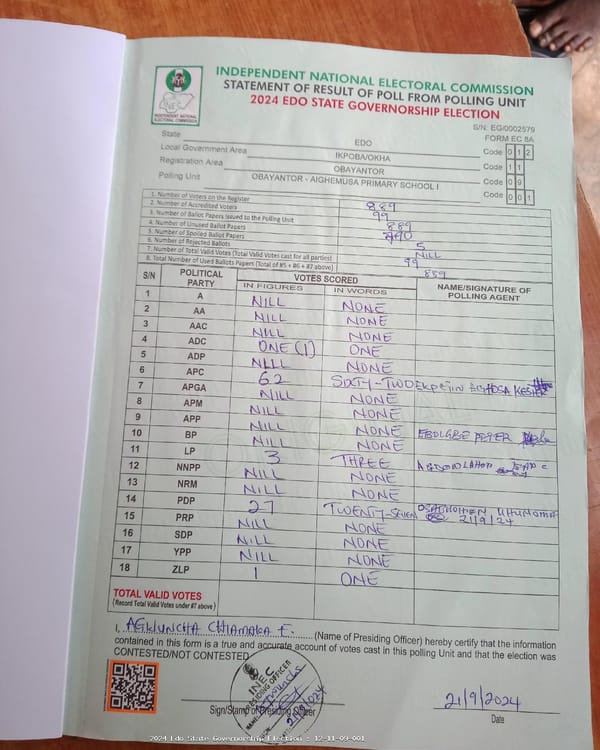 INDEPENDENT NATIONAL ELECTORAL COMMISSION
STATEMENT OF RESULT OF POLL FROM POLLING UNIT
2024 EDO STATE GOVERNORSHIP ELECTION
INEC
INDEPENDENT NATIONAL ELECTORAL COMMISSION
S/N: EG/0002579
FORM EC 8A
State EDO Code 0 1 2
Local Government Area IKPOBA/OKHA Code 1 1
Registration Area OBAYANTOR Code 0 9
Polling Unit OBAYANTOR - AIGHEMUSA PRIMARY SCHOOL I Code 0 0 1
1. Number of Voters on the Register 889
2. Number of Accredited Voters 99
3. Number of Ballot Papers Issued to the Polling Unit 889
4. Number of Unused Ballot Papers
5. Number of Spoiled Ballot Papers 5
6. Number of Rejected Ballots NILL
7. Number of Total Valid Votes (Total Valid Votes cast for all parties) 99
8. Total Number of Used Ballots Papers (Total of #5 + #6 + #7 above) 889
S/N POLITICAL PARTY VOTES SCORED NAME/SIGNATURE OF POLLING AGENT
IN FIGURES IN WORDS
1 A NILL NONE
2 AA NILL NONE
3 AAC NILL NONE
4 ADC ONE (1) ONE
5 ADP NILL NONE
6 APC 62 SIXTY-TWO
7 APGA NILL NONE
8 APM NILL NONE
9 APP NILL NONE
10 BP NILL NONE PETER
11 LP 3 THREE
12 NNPP NILL NONE
13 NRM NILL NONE
14 PDP 27 TWENTY-SEVEN 21/9/24
15 PRP NILL NONE
16 SDP NILL NONE
17 YPP NILL NONE
18 ZLP 1 ONE
TOTAL VALID VOTES
(Record Total Valid Votes under #7 above)
I, CHIAMAKA E. (Name of Presiding Officer) hereby certify that the information
contained in this form is a true and accurate account of votes cast in this polling Unit and that the election was
CONTESTED/NOT CONTESTED
INEC
PRESIDING OFFICER
Sign/Stamp of Presiding Officer
21/9/2024
Date
2024 Edo State Governorship Election : 12-11-09-001